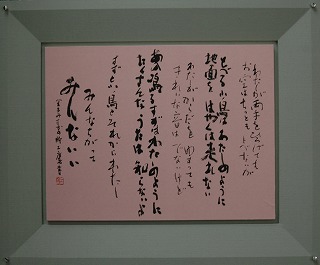 わたしが両手をひろげても
お空はちっともとべないが
とべる小鳥はわたしのように
地面をはやくは走れない
わたしがからだをゆすっても
きれいな音はでないけど
あの鳴るすずはわたしのように
たくさんなうたは知らないよ
すずと小鳥とそれからわたし
みんなちがって
みんないい
金子みすゞの詩